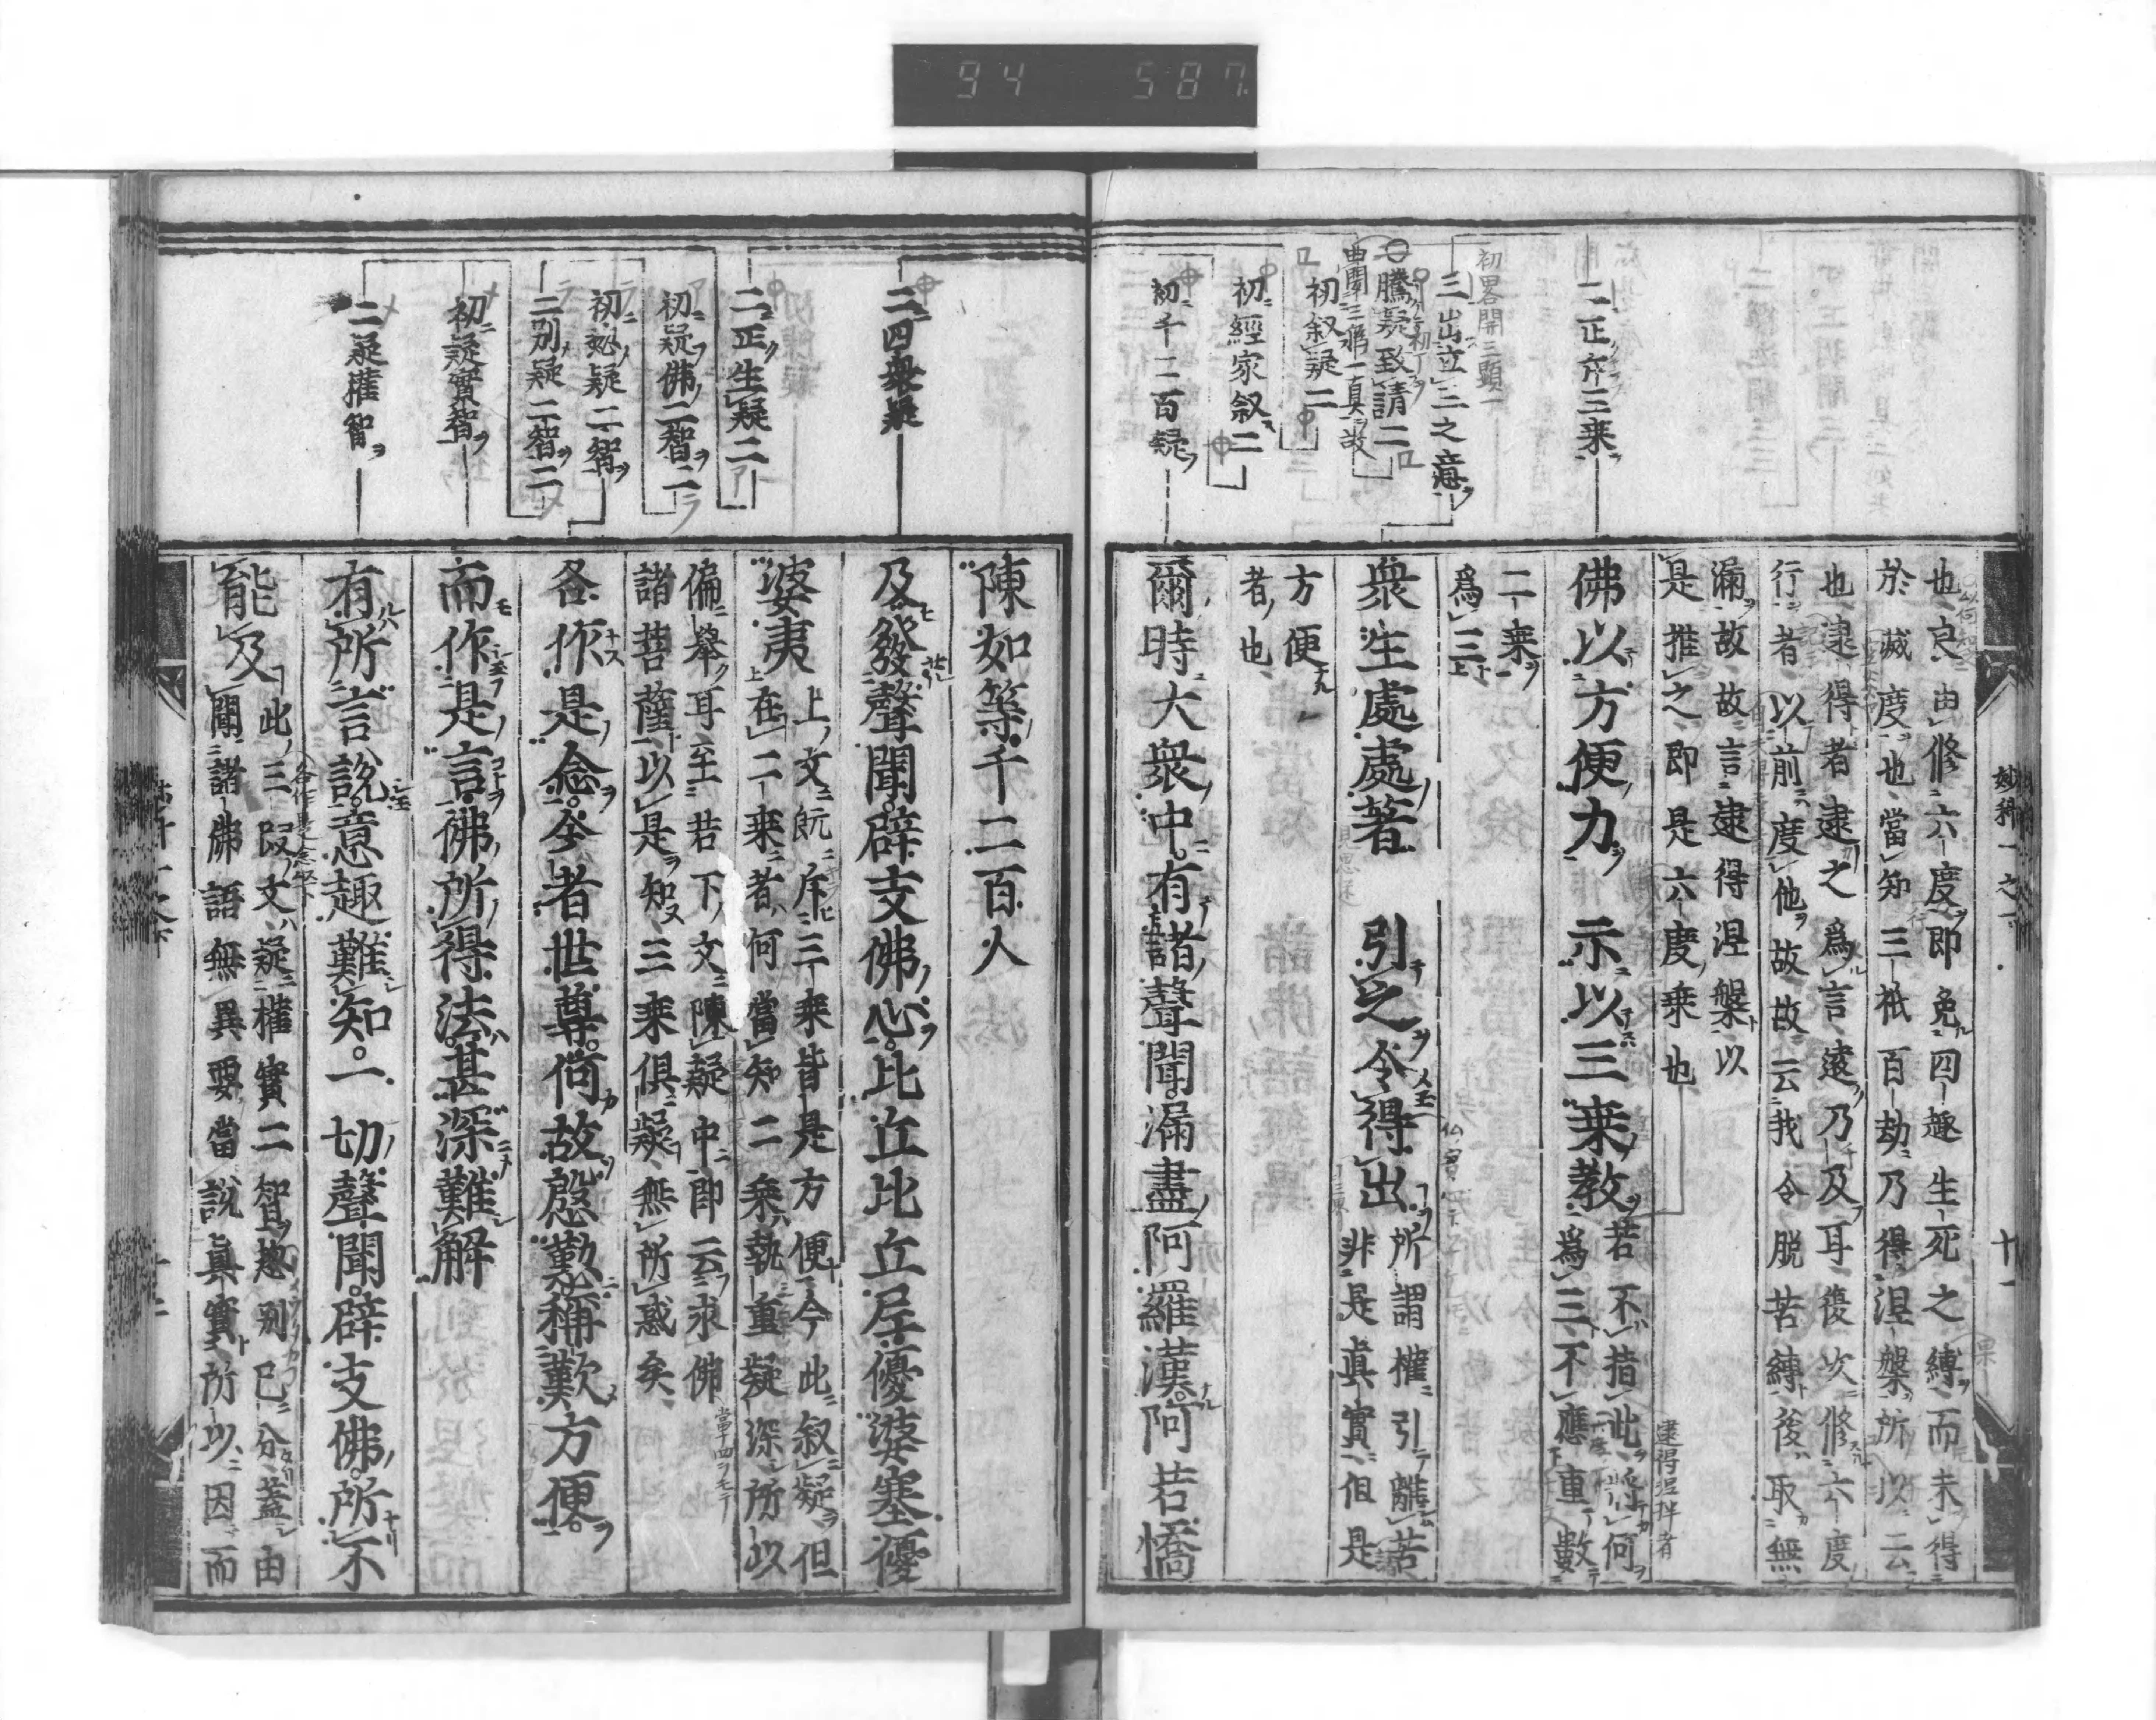 94 587
二正斥三乗
初畧開三顯一
三出立三之意
騰疑致請二
初叙疑二
初經家叙二
初千二百疑
妙科一之下
十一
也良由修六度即免四趣生死之縛而未得
於滅度也當知三祇百劫乃得涅槃所以云
也逮得者逮之爲言逮乃及耳復次修六度
行者以前度他故故云我令脱苦縛後取無
漏故故言逮得涅槃以
是推之即是六度乗也
佛以方便力示以三乗教
若不指此將何
爲三不應重數
二乗
爲三
衆生處處著引之令得出
所謂權引離苦
非是眞實但是
方便
者也
爾時大衆中有諸聲聞漏盡阿羅漢阿若憍
二四衆疑
二正生疑二
初疑佛二智二
初惣疑二智
二別疑二智二
初疑實智
二疑權智
陳如等千二百人
及發聲聞辟支佛心比丘比丘尼優婆塞優
婆夷
上文既斥三乗皆是方便今此叙疑但
在二乗者何當知二乗執重疑深所以
偏舉耳至若下文陳疑中即云求佛
諸菩薩以是知三乗俱疑無所惑矣
各作是念今者世尊何故慇懃稱歎方便
而作是言佛所得法甚深難解
有所言說意趣難知一切聲聞辟支佛所不
能及
此三段文疑權實二智惣別已分蓋由
聞諸佛語無異要當說眞實所以因而